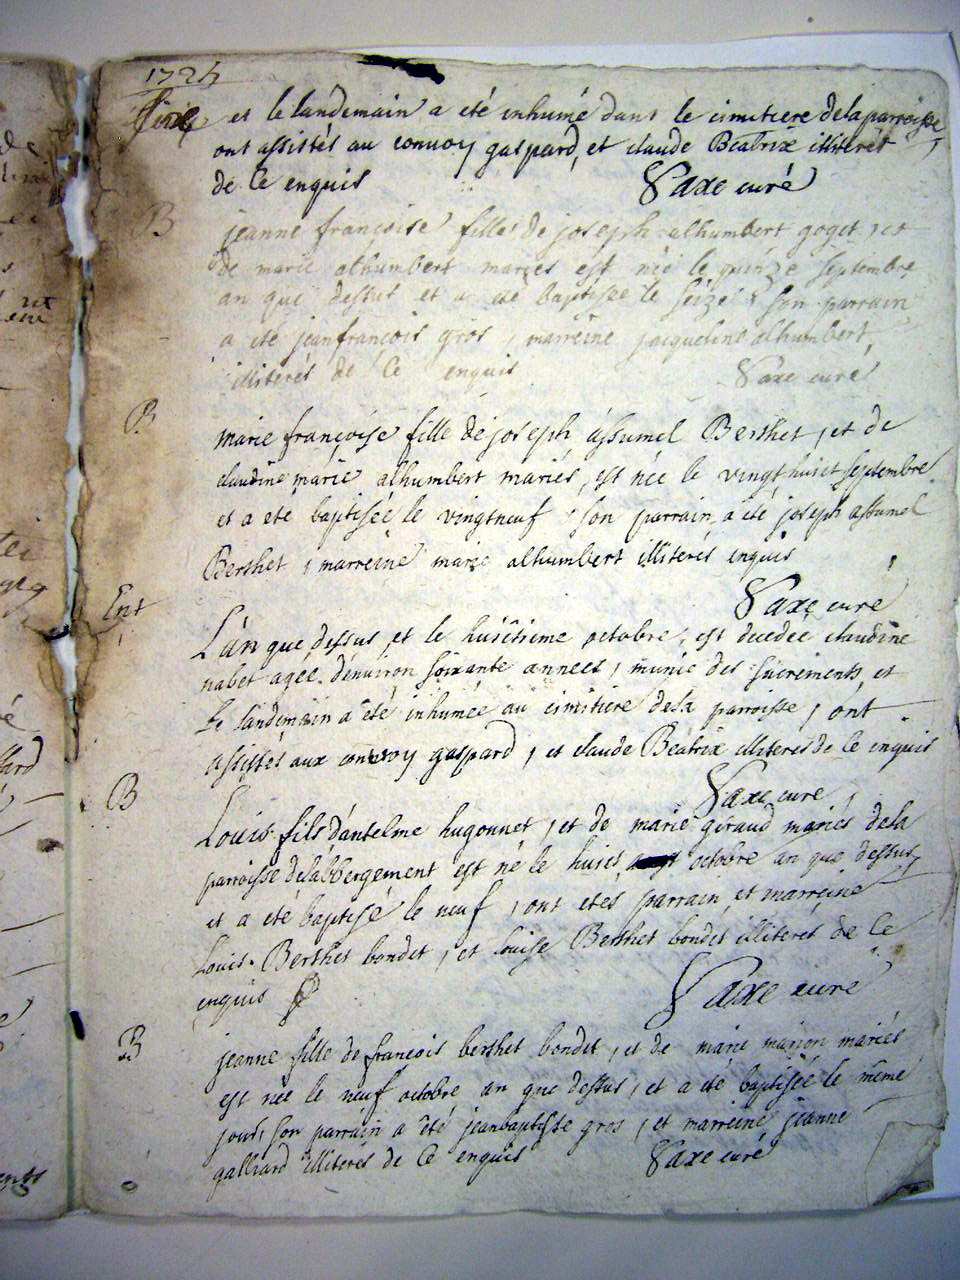 1724
et le landemain a été inhumé dans le cimitiere dela parroisse,
ont assistés au convoy gaspard, et claude Beatrix illiterés
de ce enquis Saxe curé
B
jeanne françoise fille de joseph alhumbert goget, et
de marie alhumbert mariés est née le quinze septembre
an que dessus et a été baptisée le seize son parrain
a été jeanfrancois gros, marreine jacqueline alhumbert,
illiterés de ce enquis Saxe curé
B
marie françoise fille de joseph assumel Berthet, et de
claudine marie alhumbert mariés, est née le vingthuict septembre
et a été baptisée le vingtneuf, son parrain a été joseph assumel
Berthet, marreine marie alhumbert illiterés enquis
Saxe curé
Ent
L'an que dessus et le huictieme octobre, est decedée claudine
nabet agée d'environ soixante annees, munie des sacrements, et
le landemain a été inhumée au cimitiere dela parroisse, ont
assistés aux convoy gaspard, et claude Beatrix illiteres de ce enquis
Saxe curé
B
Louis fils d'antelme hugonnet, et de marie giraud mariés dela
parroisse delabbergement est né le huict octobre an que dessus,
et a été baptisé le neuf, ont etes parrain et marreine
Louis Berthet bondet, et louise Berthet bondet illiterés de ce
enquis Saxe curé
B
jeanne fille de françois berthet bondet, et de marie marion mariés
est née le neuf octobre an que dessus, et a été baptisée le même
jour, son parrain a été jeanbaptiste gros, et marreine jeanne
galliard illiteres de ce enquis Saxe curé